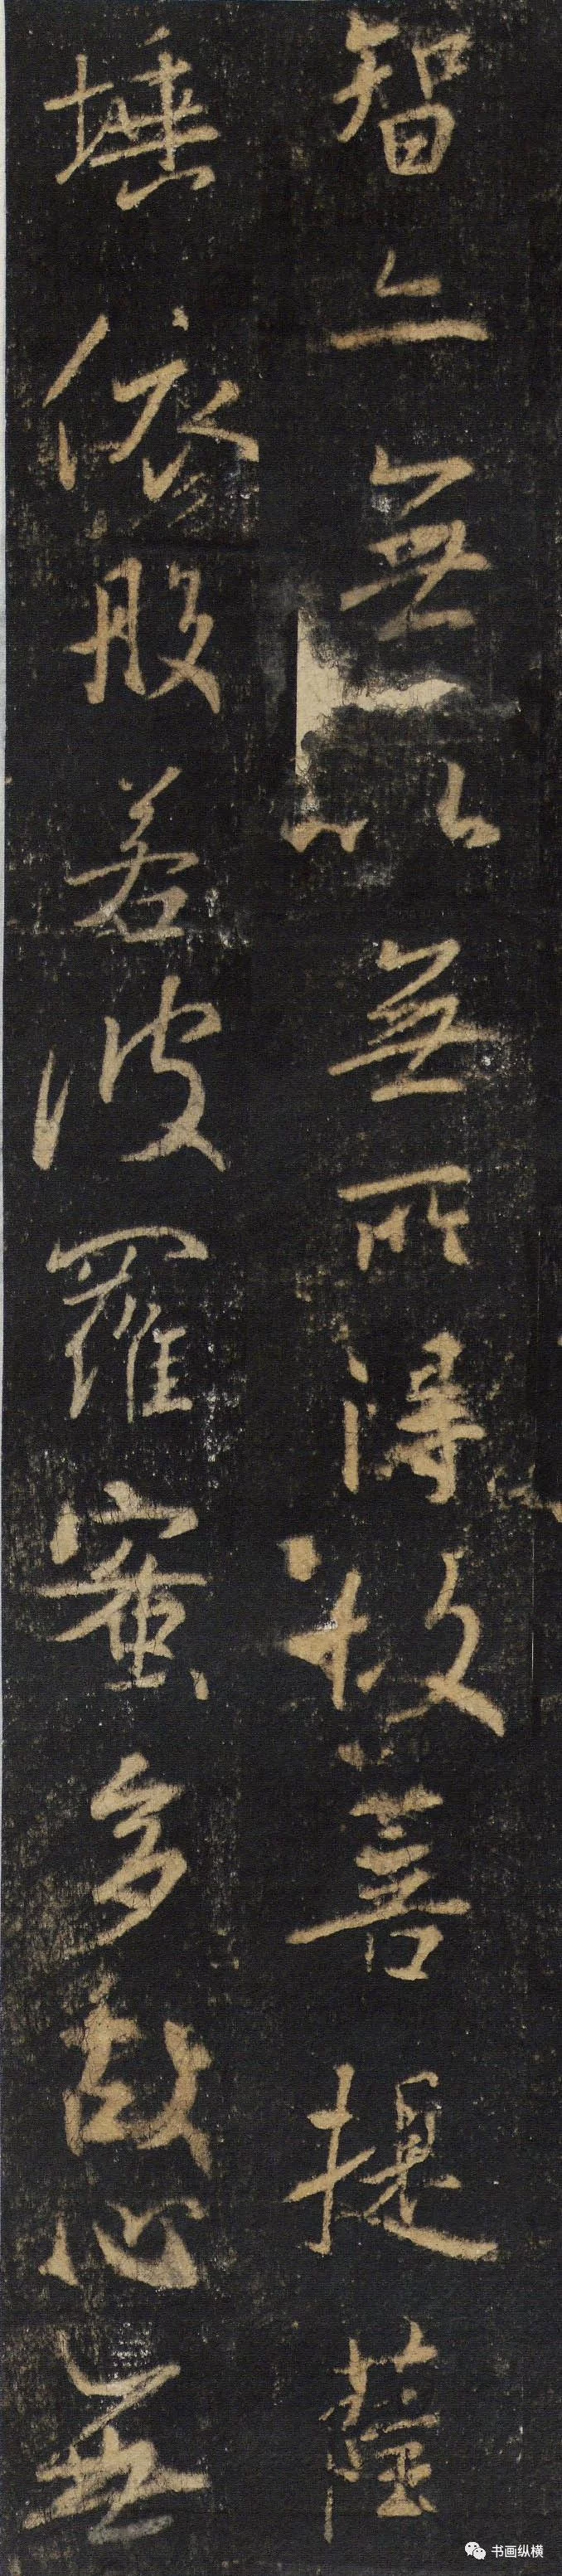 智亦無以無所得故菩提薩
埵依般若波羅蜜多故心無
书画纵横